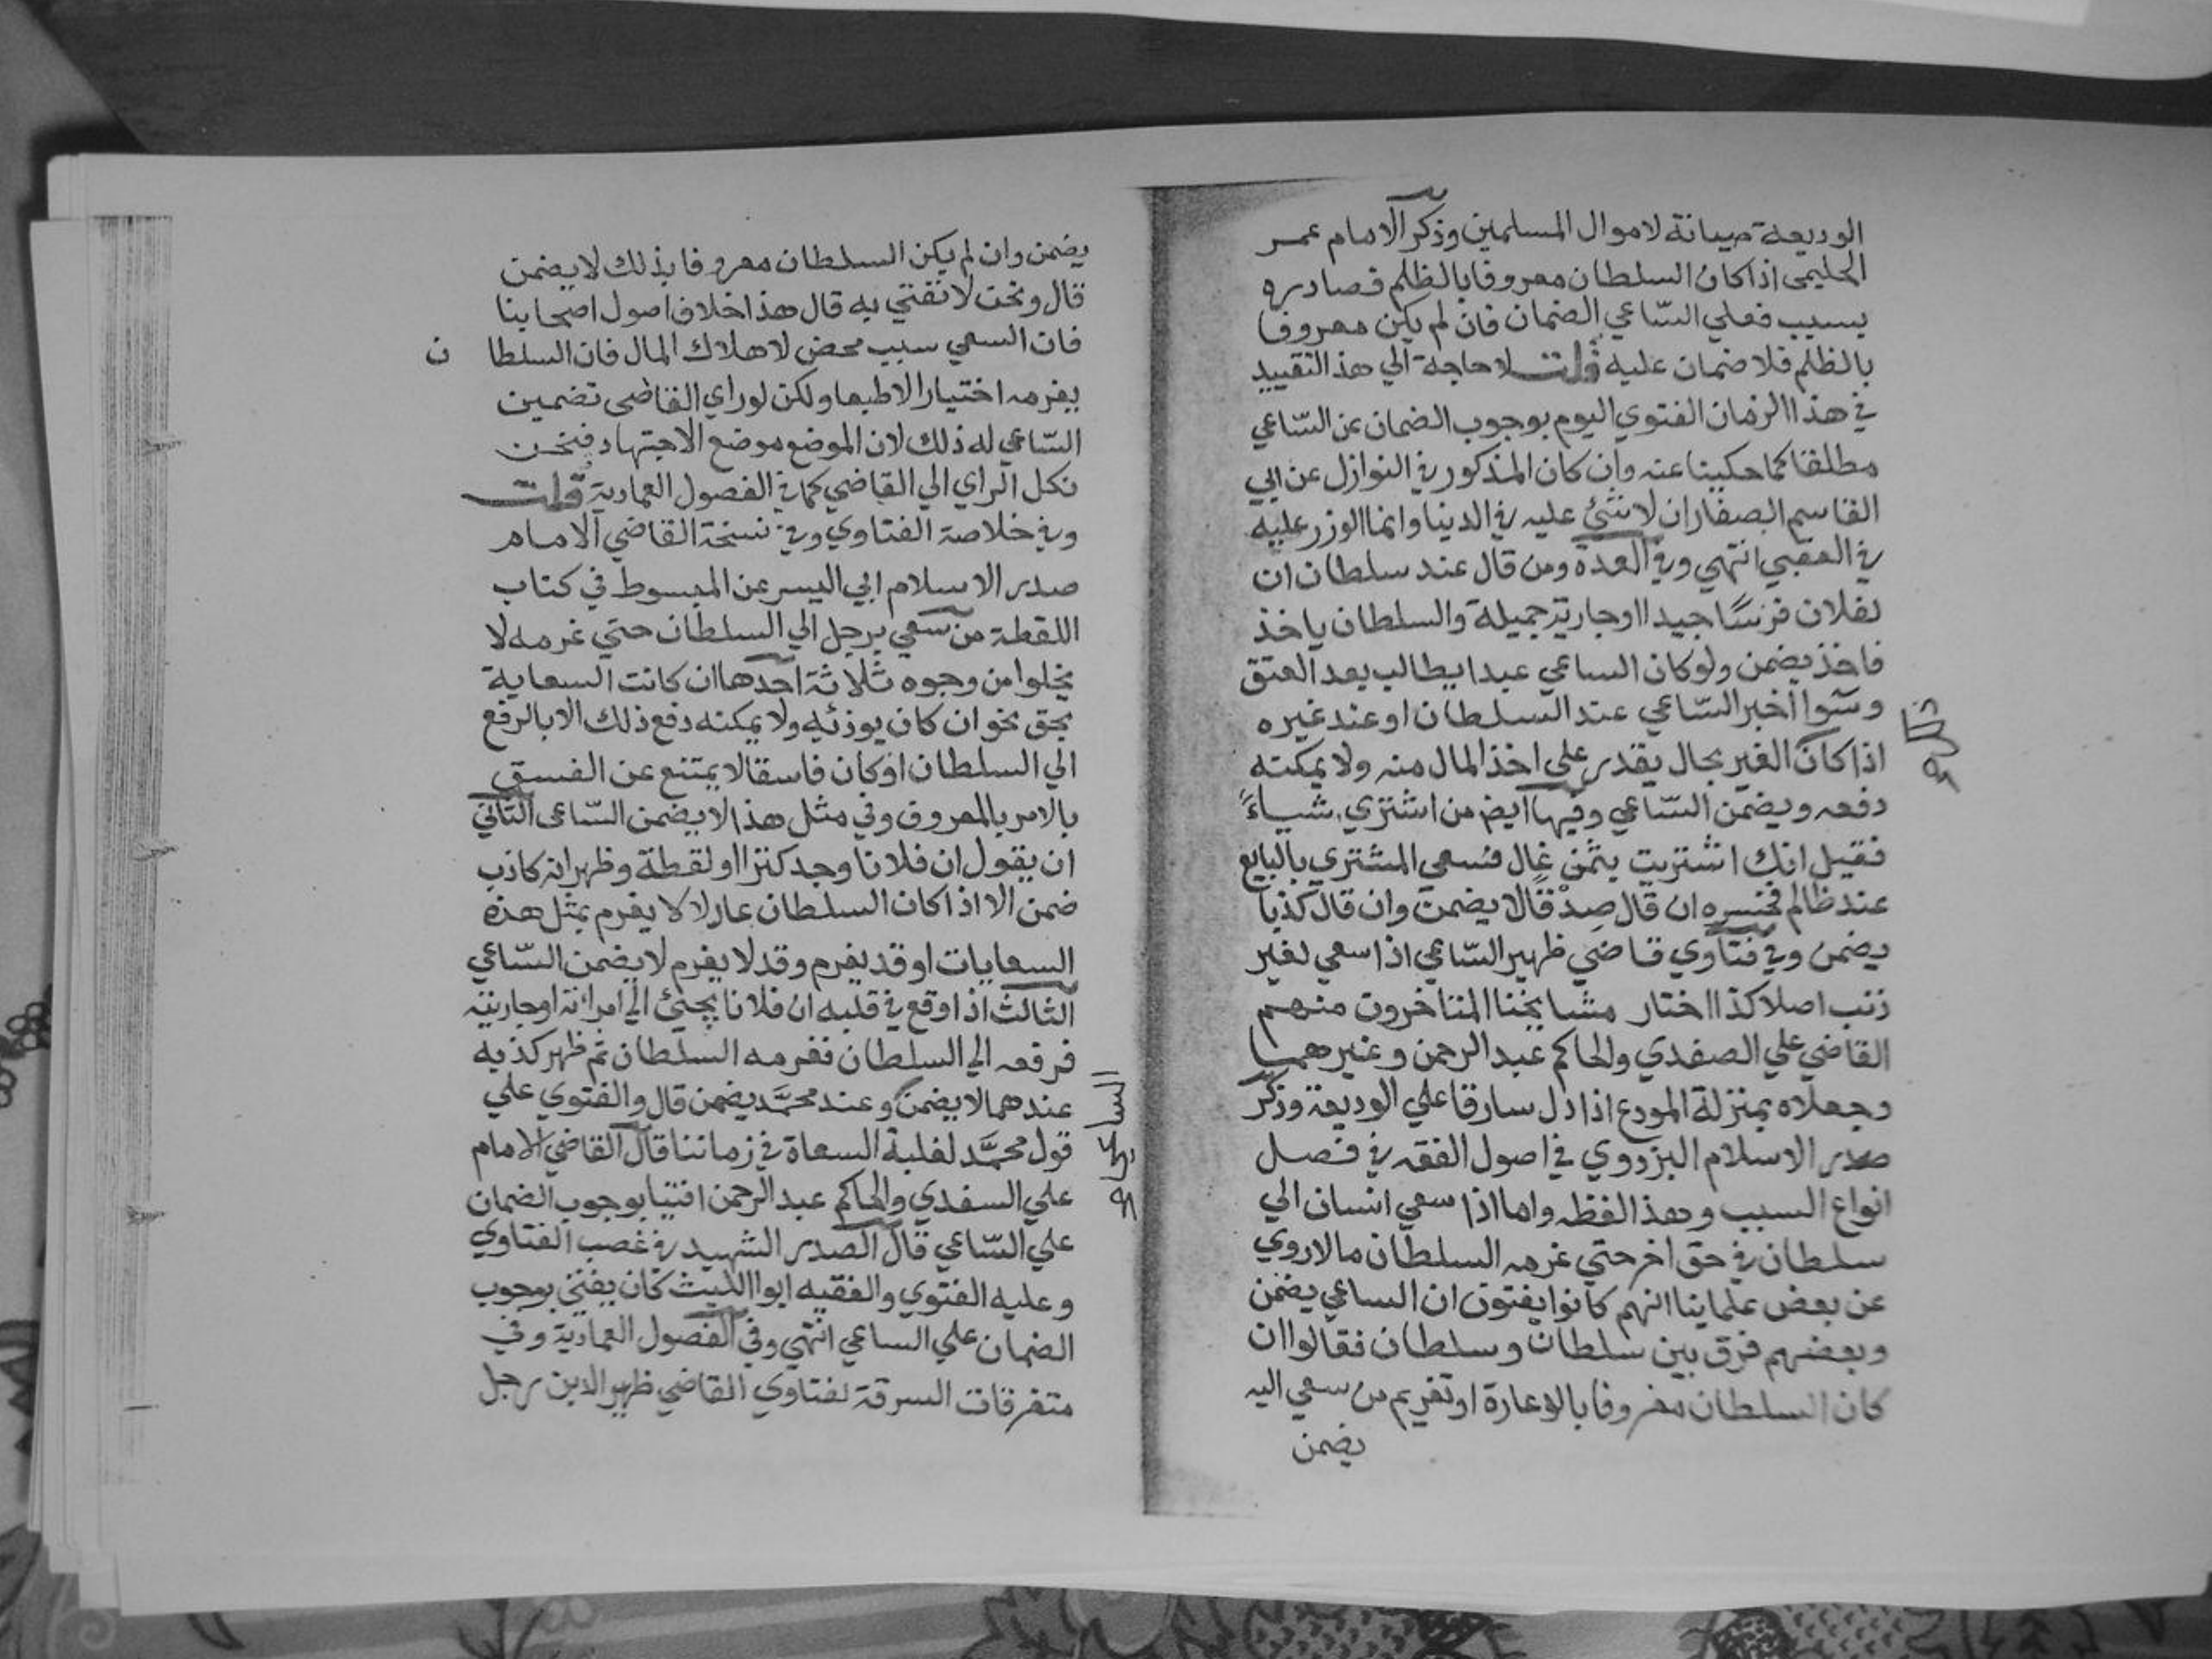 الوديعة صيانة لاموال المسلمين وذكر الامام عمر
الحليمى اذا كان السلطان معروفا بالظلم فصادره
بسبب فعلي الساعي الضمان فان لم يكن معروفا
بالظلم فلا ضمان عليه قلت لا حاجة الي هذا التقييد
في هذا الزمان الفتوي اليوم بوجوب الضمان عن الساعي
مطلقا كما حكينا عنه وان كان المذكور في النوازل عن ابي
القاسم الصفار ان لا شئ عليه في الدنيا وانما الوزر عليه
في العقبي انتهي وفي العدة ومن قال عند سلطان ان
لفلان فرسًا جيدا او جارية جميلة والسلطان ياخذ
فاخذ يضمن ولو كان الساعي عبدا يطالب بعد العتق
وسوا اخبر الساعي عند السلطان او عند غيره
اذا كان الغير بحال يقدر علي اخذ المال منه ولا يمكنه
دفعه ويضمن الساعي وفيها ايضم من اشتري شياءً
فقيل انك اشتريت بثمن غال فسعى المشتري بالبايع
عند ظالم فخسره ان قال صدقًا لا يضمن وان قال كذبا
يضمن وفي فتاوي قاضي ظهير الساعي اذا سعي لغير
ذنب اصلا كذا اختار مشايخنا المتاخرون منهم
القاضي علي الصفدي والحاكم عبد الرحمن وغيرهما
وجعلاه بمنزلة المودع اذا دل سارقا علي الوديعة وذكر
صدر الاسلام البزدوي في اصول الفقه في فصل
انواع السبب وهذا لفظه واما اذا سعي انسان الي
سلطان في حق اخر حتي غرمه السلطان مالا روي
عن بعض علماينا انهم كانوا يفتون ان الساعي يضمن
وبعضهم فرق بين سلطان وسلطان فقالوا ان
كان السلطان معروفا بالاعارة او تغريم من سعي اليه
يضمن
يضمن وان لم يكن السلطان معروفا بذلك لا يضمن
قال ونحن لا نفتي به قال هذا خلاف اصول اصحابنا
فان السعي سبب محض لاهلاك المال فان السلطا ن
يغرمه اختيارا لا طبعا ولكن لو راي القاضى تضمين
الساعي له ذلك لان الموضع موضع الاجتهاد فنحن
نكل الراي الي القاضي كما في الفصول العمادية قلت
وفي خلاصة الفتاوي وفي نسخة القاضي الامام
صدر الاسلام ابي اليسر عن المبسوط في كتاب
اللقطة من سعي برجل الي السلطان حتي غرمه لا
يخلوا من وجوه ثلاثة احدها ان كانت السعاية
بحق نحو ان كان يوذئه ولا يمكنه دفع ذلك الا بالرفع
الي السلطان او كان فاسقا لا يمتنع عن الفسق
بالامر بالمعروف وفي مثل هذا لا يضمن الساعى الثاني
ان يقول ان فلانا وجد كنزا او لقطة وظهر انه كاذب
ضمن الا اذا كان السلطان عادلا لا يغرم بمثل هذه
السعايات او قد يغرم وقد لا يغرم لا يضمن الساعي
الثالث اذا وقع في قلبه ان فلانا يجئ الي امراته او جاريته
فرفعه الي السلطان فغرمه السلطان ثم ظهر كذبه
عندهما لا يضمن وعند محمد يضمن قال والفتوي علي
قول محمد لغلبة السعاة في زماننا قال القاضي الامام
علي السغدي والحاكم عبد الرحمن افتيا بوجوب الضمان
علي الساعي قال الصدر الشهيد في غصب الفتاوي
وعليه الفتوي والفقيه ابوا الليث كان يفتي بوجوب
الضمان علي الساعي انتهي وفي الفصول العمادية وفي
متفرقات السرقة لفتاوي القاضي ظهير الدين رجل